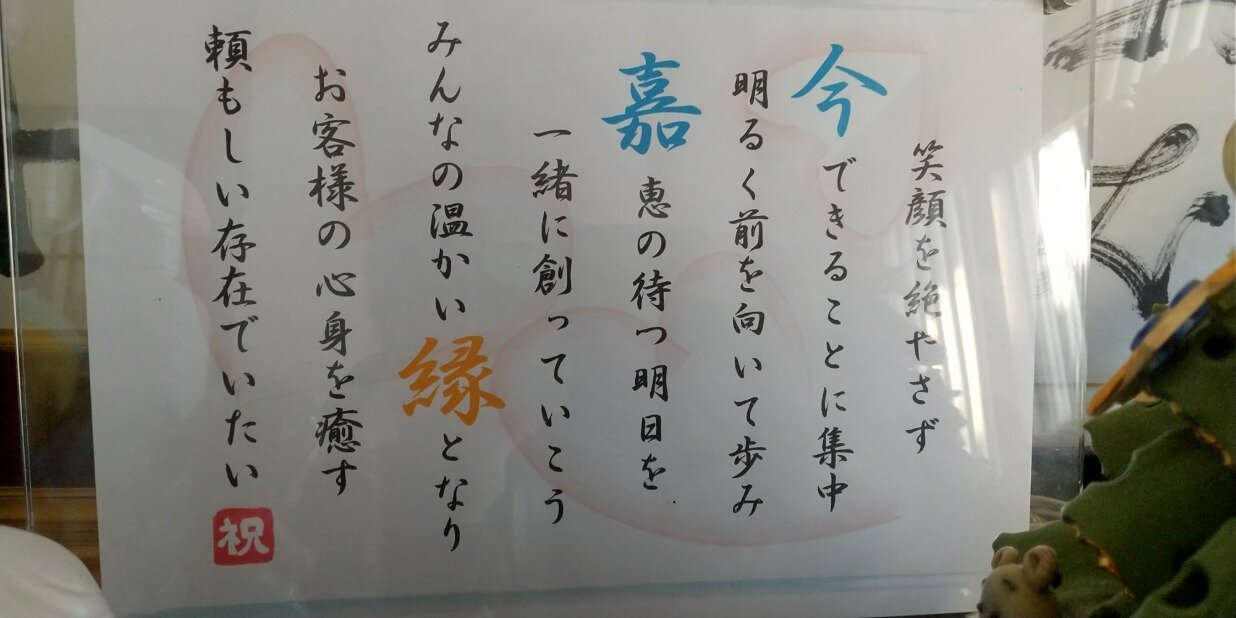 笑顔を絶やさず
今できることに集中
明るく前を向いて歩み
嘉恵の待つ明日を
一緒に創っていこう
みんなの温かい縁となり
お客様の心身を癒す
頼もしい存在でいたい
祝